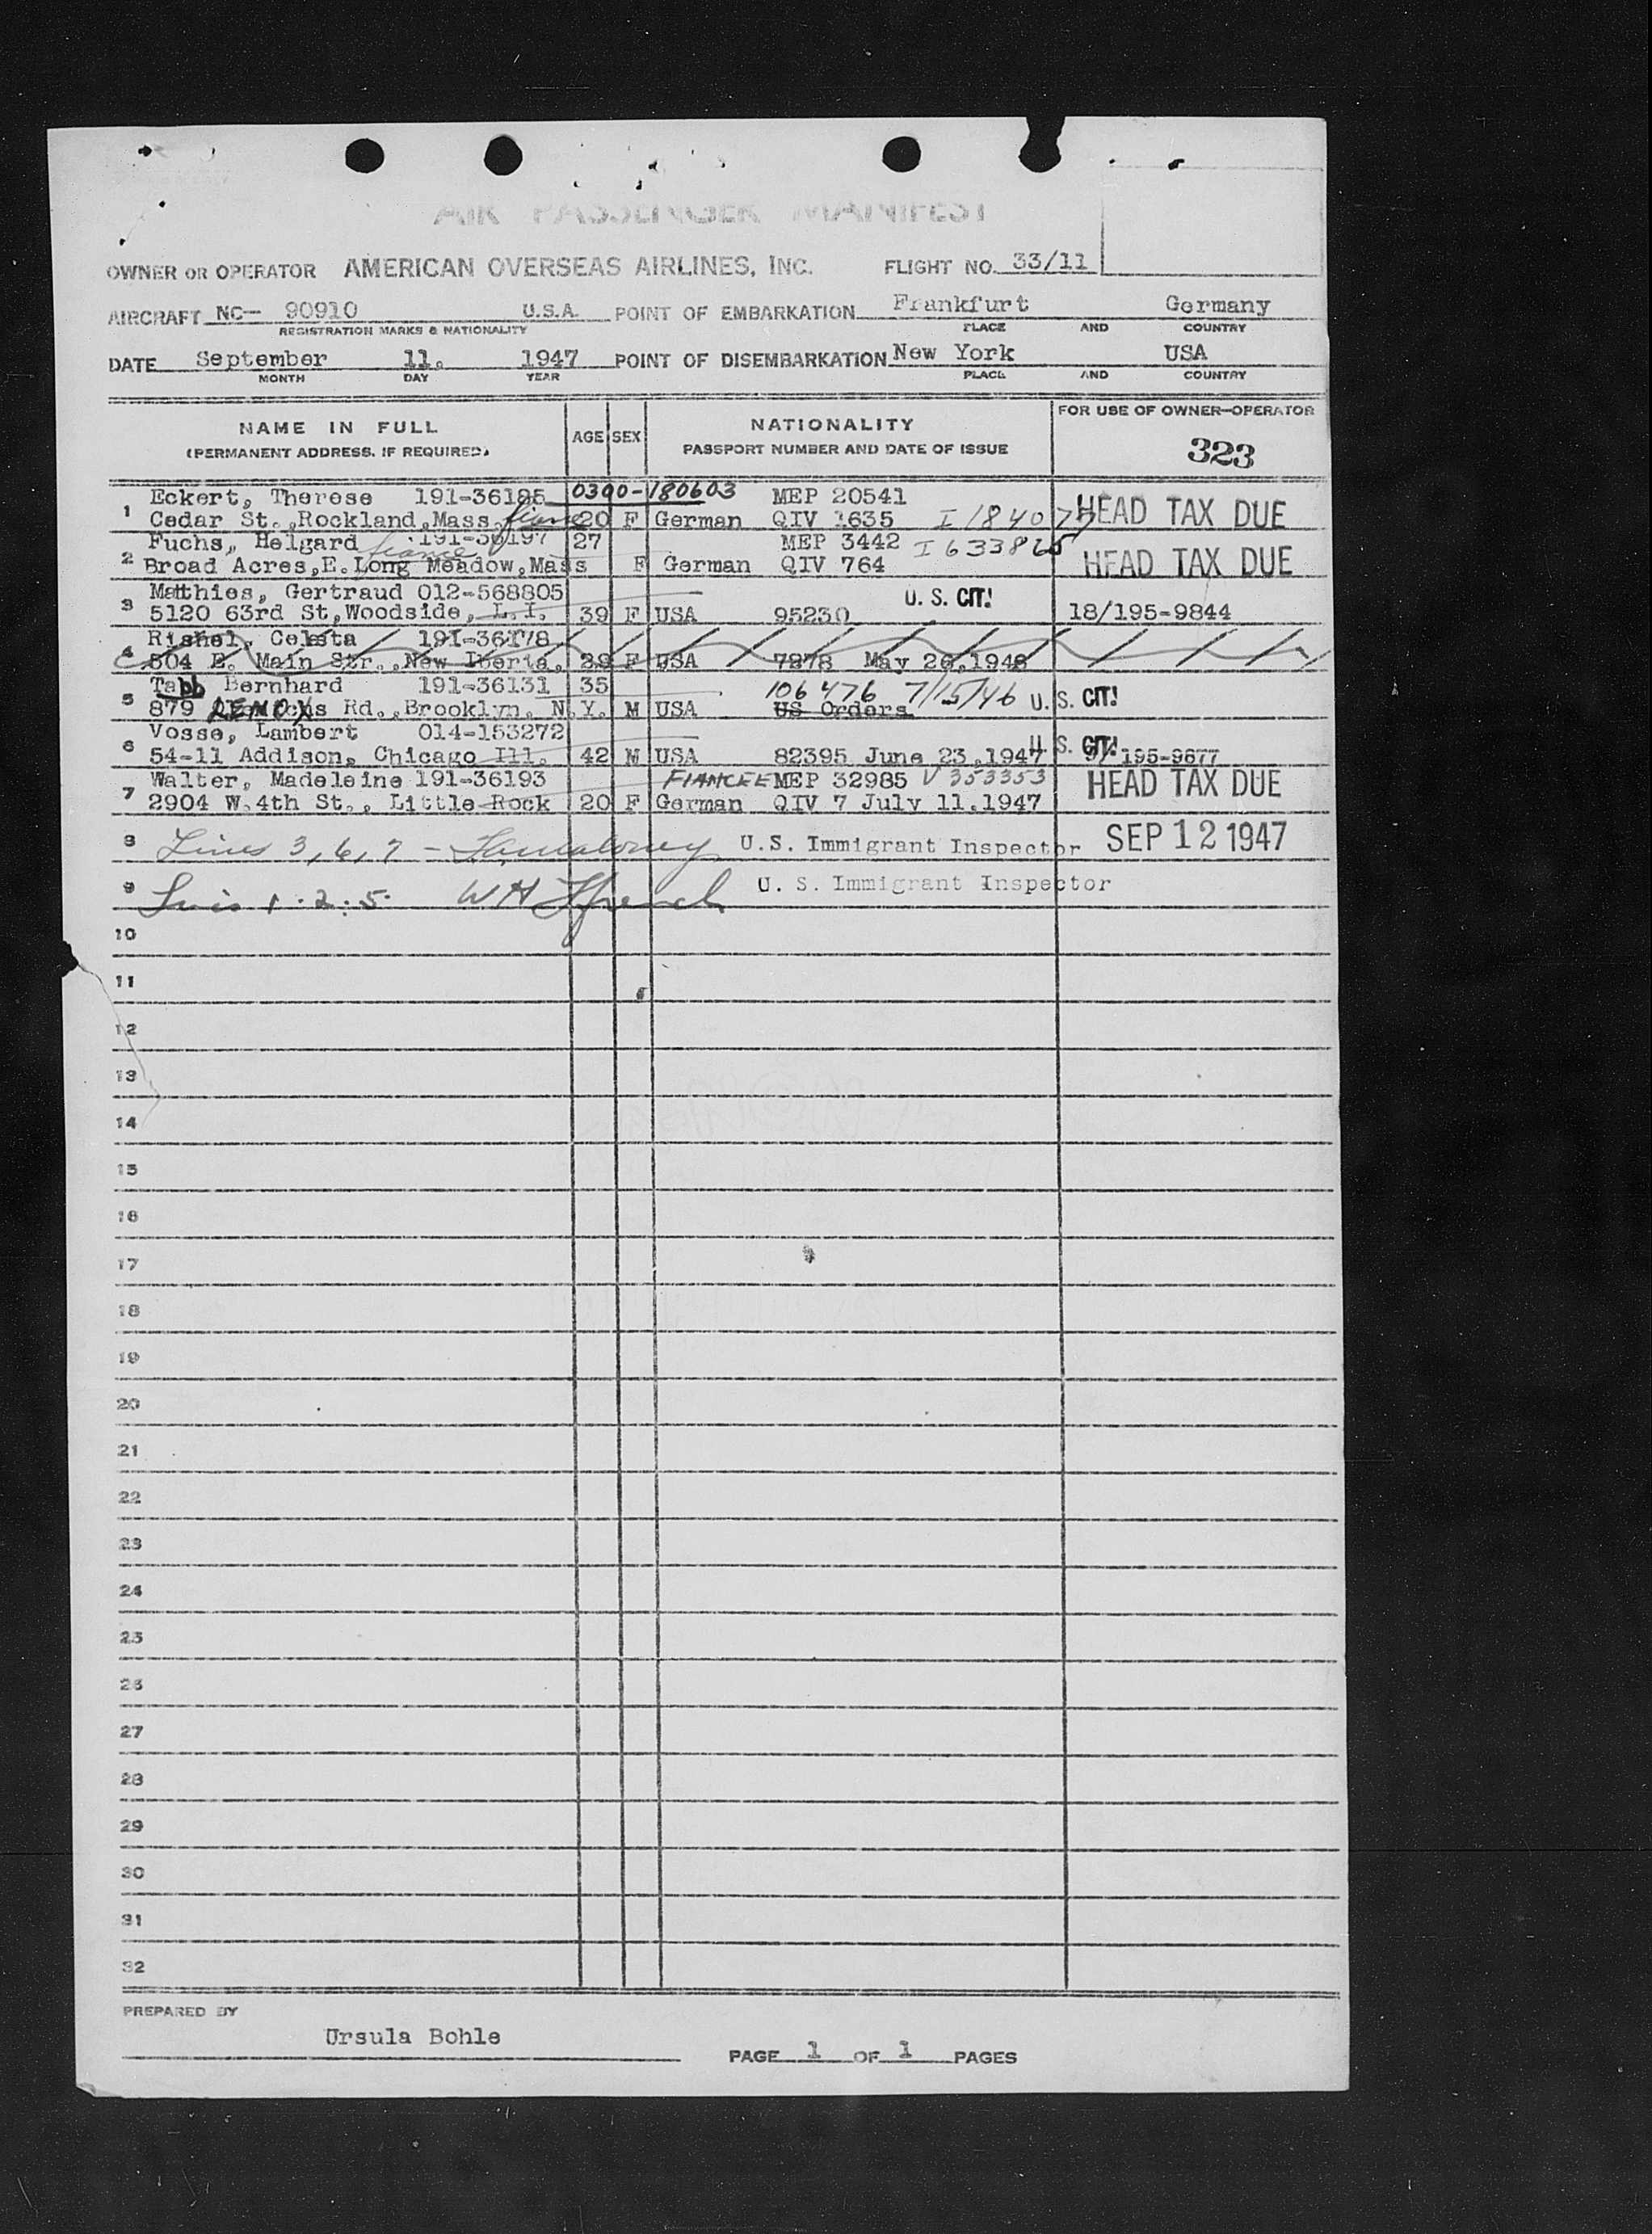 AIR PASSENGER MANIFEST
OWNER OR OPERATOR AMERICAN OVERSEAS AIRLINES, INC. FLIGHT NO. 33/11
AIRCRAFT NC- 90910 U.S.A. POINT OF EMBARKATION Frankfurt Germany
REGISTRATION MARKS & NATIONALITY PLACE AND COUNTRY
DATE September 11. 1947 POINT OF DISEMBARKATION New York USA
MONTH DAY YEAR PLACE AND COUNTRY
NAME IN FULL AGE SEX NATIONALITY FOR USE OF OWNER-OPERATOR
(PERMANENT ADDRESS, IF REQUIRED) PASSPORT NUMBER AND DATE OF ISSUE 323
Eckert, Therese 191-36185 0300-180603 MEP 20541
1 Cedar St.,Rockland,Mass. 20 F German QIV 1635 HEAD TAX DUE
Fuchs, Helgard fiancee 191-36197 27 MEP 3442 I 633865
2 Broad Acres,E.Long Meadow,Mass F German QIV 764 HEAD TAX DUE
Matthies, Gertraud 012-568805 U. S. CIT!
3 5120 63rd St,Woodside, L.I. 39 F USA 95230 18/195-9844
Rishel, Celesta 191-36178
4 504 E. Main Str., New Iberia, 39 F USA 7278 May 26,1948
Tabb Bernhard 191-36131 35 106476 7/15/46 U. S. CIT!
5 879 LENOX Rd., Brooklyn, N.Y. M USA US Orders
Vosse, Lambert 014-153272 U. S. CIT!
6 54-11 Addison, Chicago Ill. 42 M USA 82395 June 23,1947 195-9677
Walter, Madeleine 191-36193 FIANCEE MEP 32985 V 353353
7 2904 W.4th St., Little Rock 20 F German QIV 7 July 11.1947 HEAD TAX DUE
8 Lines 3, 6, 7 - U.S. Immigrant Inspector SEP 12 1947
9 Lines 1. 2. 5. W H Ffrench U. S. Immigrant Inspector
10
11
12
13
14
15
16
17
18
19
20
21
22
23
24
25
26
27
28
29
30
31
32
PREPARED BY
Ursula Bohle
PAGE 1 OF 1 PAGES